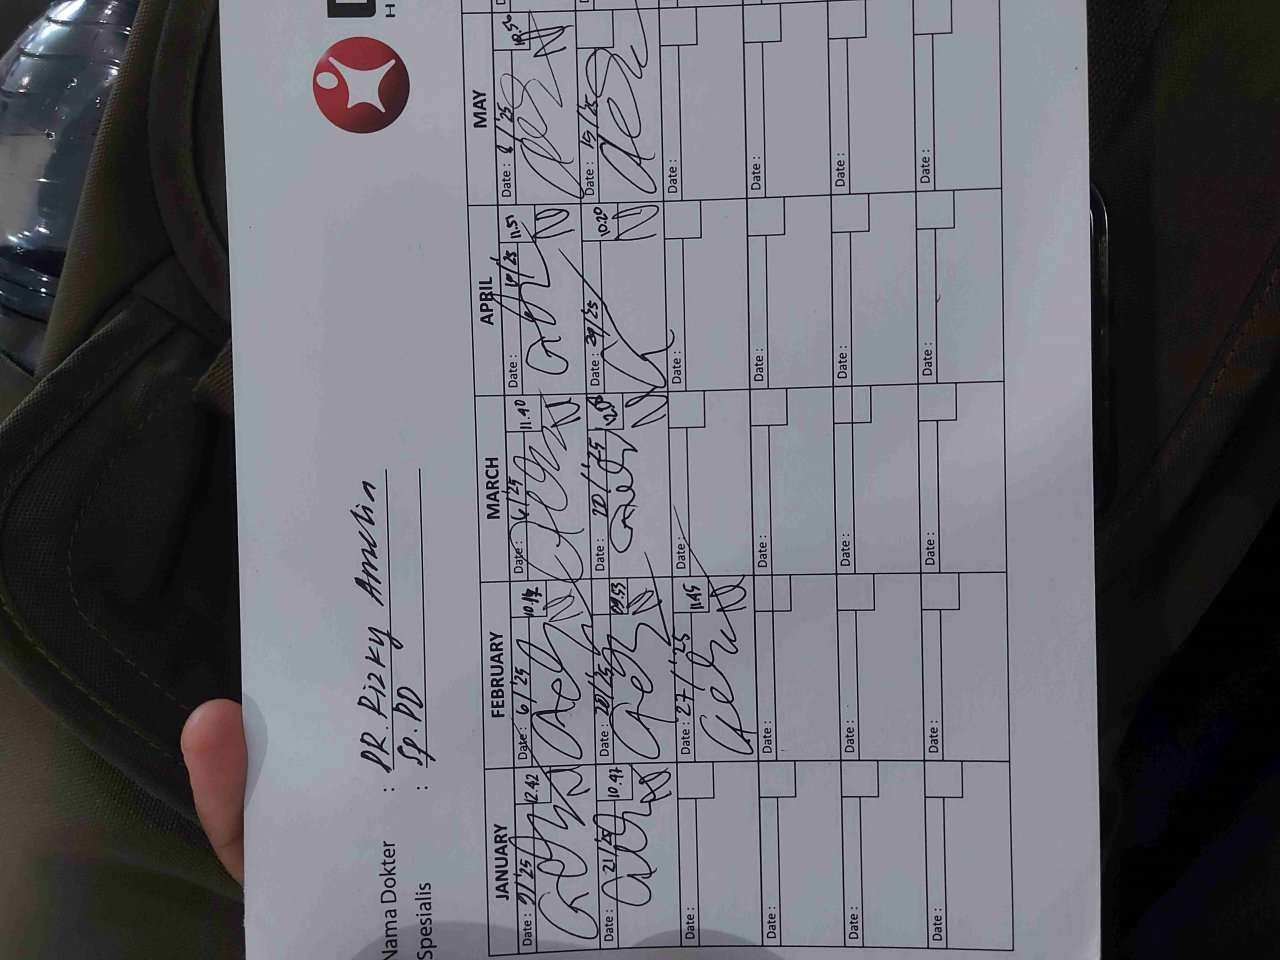 Nama Dokter : DR. Rizky Amelia
Spesialis : Sp. PD
JANUARY FEBRUARY MARCH APRIL MAY
Date : 9/'25 12.42 Date : 6/'25 Date : 6/'25 11.40 Date : 11.51 Date : 8/'25
Date : 21/'25 10.47 Date : 20/'25 09.53 Date : 20/'25 Date : 29/'25 10.20 Date : 15/'25
Date : Date : 27/'25 11.45 Date : Date : Date :
Date : Date : Date : Date : Date :
Date : Date : Date : Date : Date :
Date : Date : Date : Date : Date :